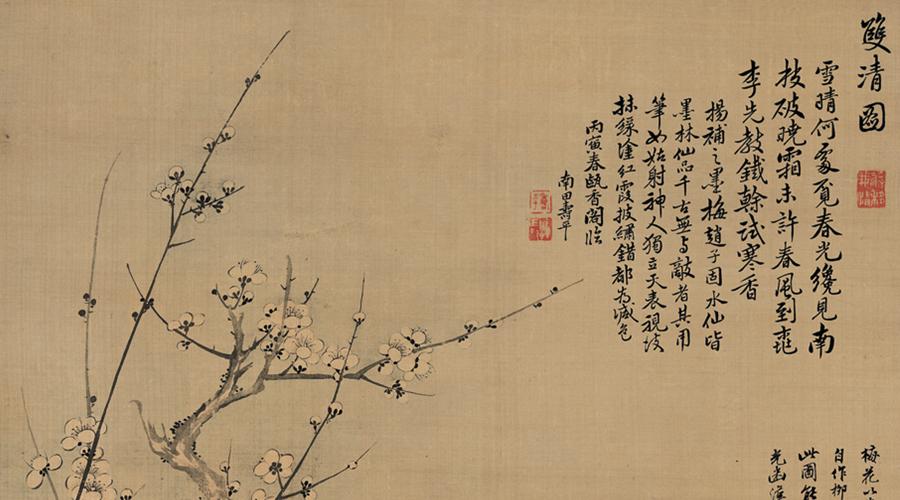 雙清圖
雪晴何處覓春光纔見南
枝破曉霜未許春風到桃
李先教鐵幹試寒香
楊補之墨梅趙子固水仙皆
墨林仙品千古無與敵者其用
筆如姑射神人獨立天表視彼
抹綠塗紅霞披繡錯都為減色
丙寅春甌香閣臨
南田壽平
梅花
自作
此圖
光